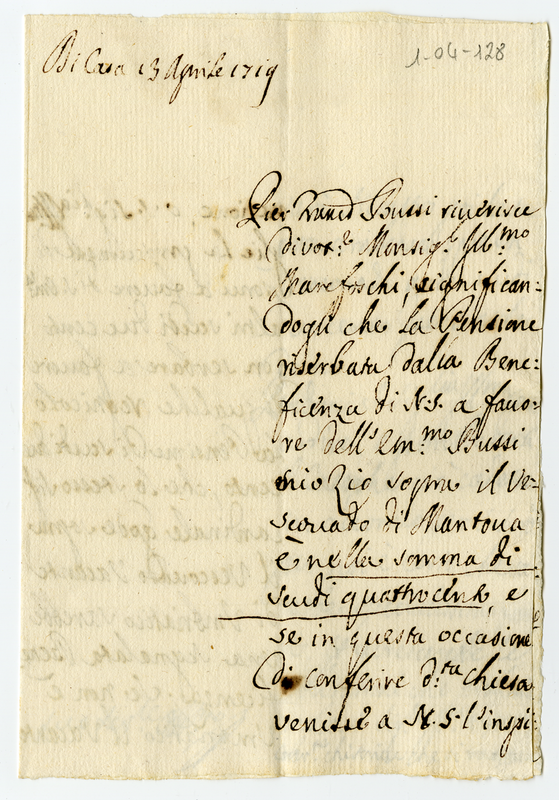 Di Casa 13 Aprile 1719
1-04-128
Pier Franc.o Bussi riverisce
divot.e Monsig.r Ill.mo
Marefoschi, significan-
dogli che la Pensione
riserbata dalla Bene-
ficenza di N.S. a favo-
re dell' Em.mo Bussi
mio Zio sopra il Ve-
scovado di Mantova
è nella somma di
scudi quattrocento, e
se in questa occasione
di conferire d.ta Chiesa
venisse a N.S. l'inspi-